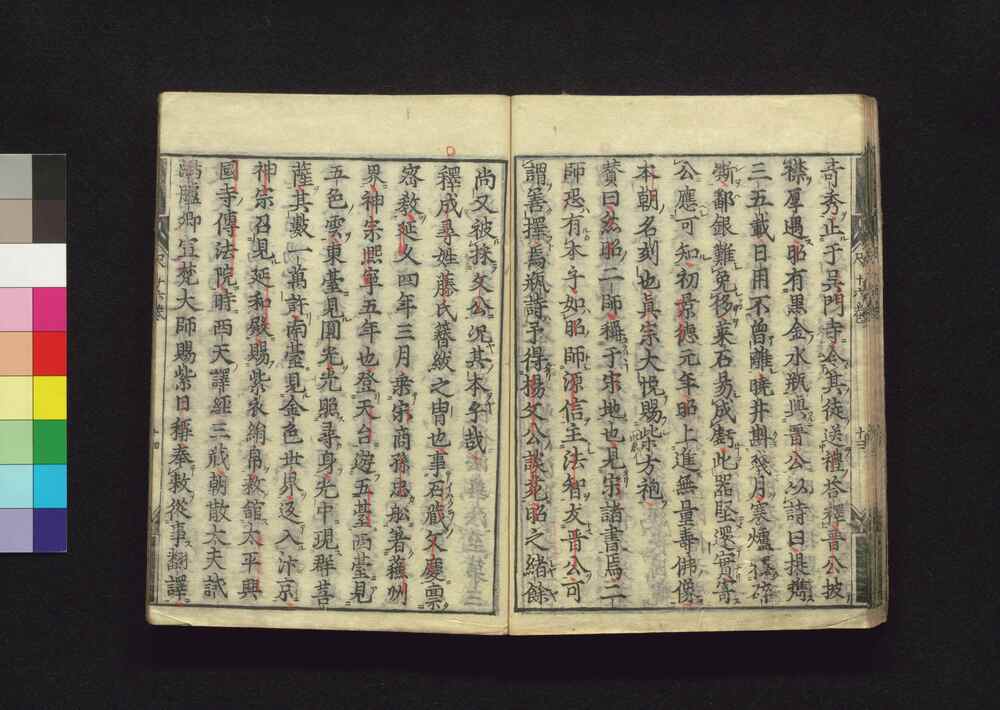 奇秀止于呉門寺令其徒送禮答釋晋公披
襟厚遇昭有黒金水瓶與晋公以詩曰提携
三五載日用不曽離曉井斟殘月寒爐釋碎
澌鄱銀難免移萊石易成虧此器堅還實寄
公應可知初景德元年昭上進無量壽佛像
本朝名刻也眞宗大悦賜紫方袍
賛曰玆昭二師稱于宋地也見宋諸書焉二
師恐有本乎如昭師源信主法智友晋公可
謂善擇焉瓶詩予得楊文公談苑昭之緒餘
尚又被採文公況其本乎哉
釋成尋姓藤氏簪紱之冑也事石藏文慶禀
密教延久四年三月乗宋商孫忠舩著蘓州
界神宗熈寧五年也登天台遊五䑓西䑓見
五色雲東䑓見圓光光照尋身光中現群菩
薩其數一萬許南䑓見金色世界迄入汴京
神宗召見延和殿賜紫衣絹帛救舘太平興
國寺傳法院時西天譯經三藏朝散大夫試
鴻臚卿宣梵大師賜紫日稱奉敕從事翻譯